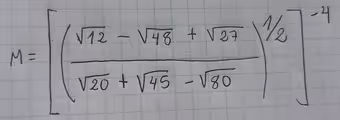 M = [((√12 − √48 + √27) / (√20 + √45 − √80))^1/2]^−4